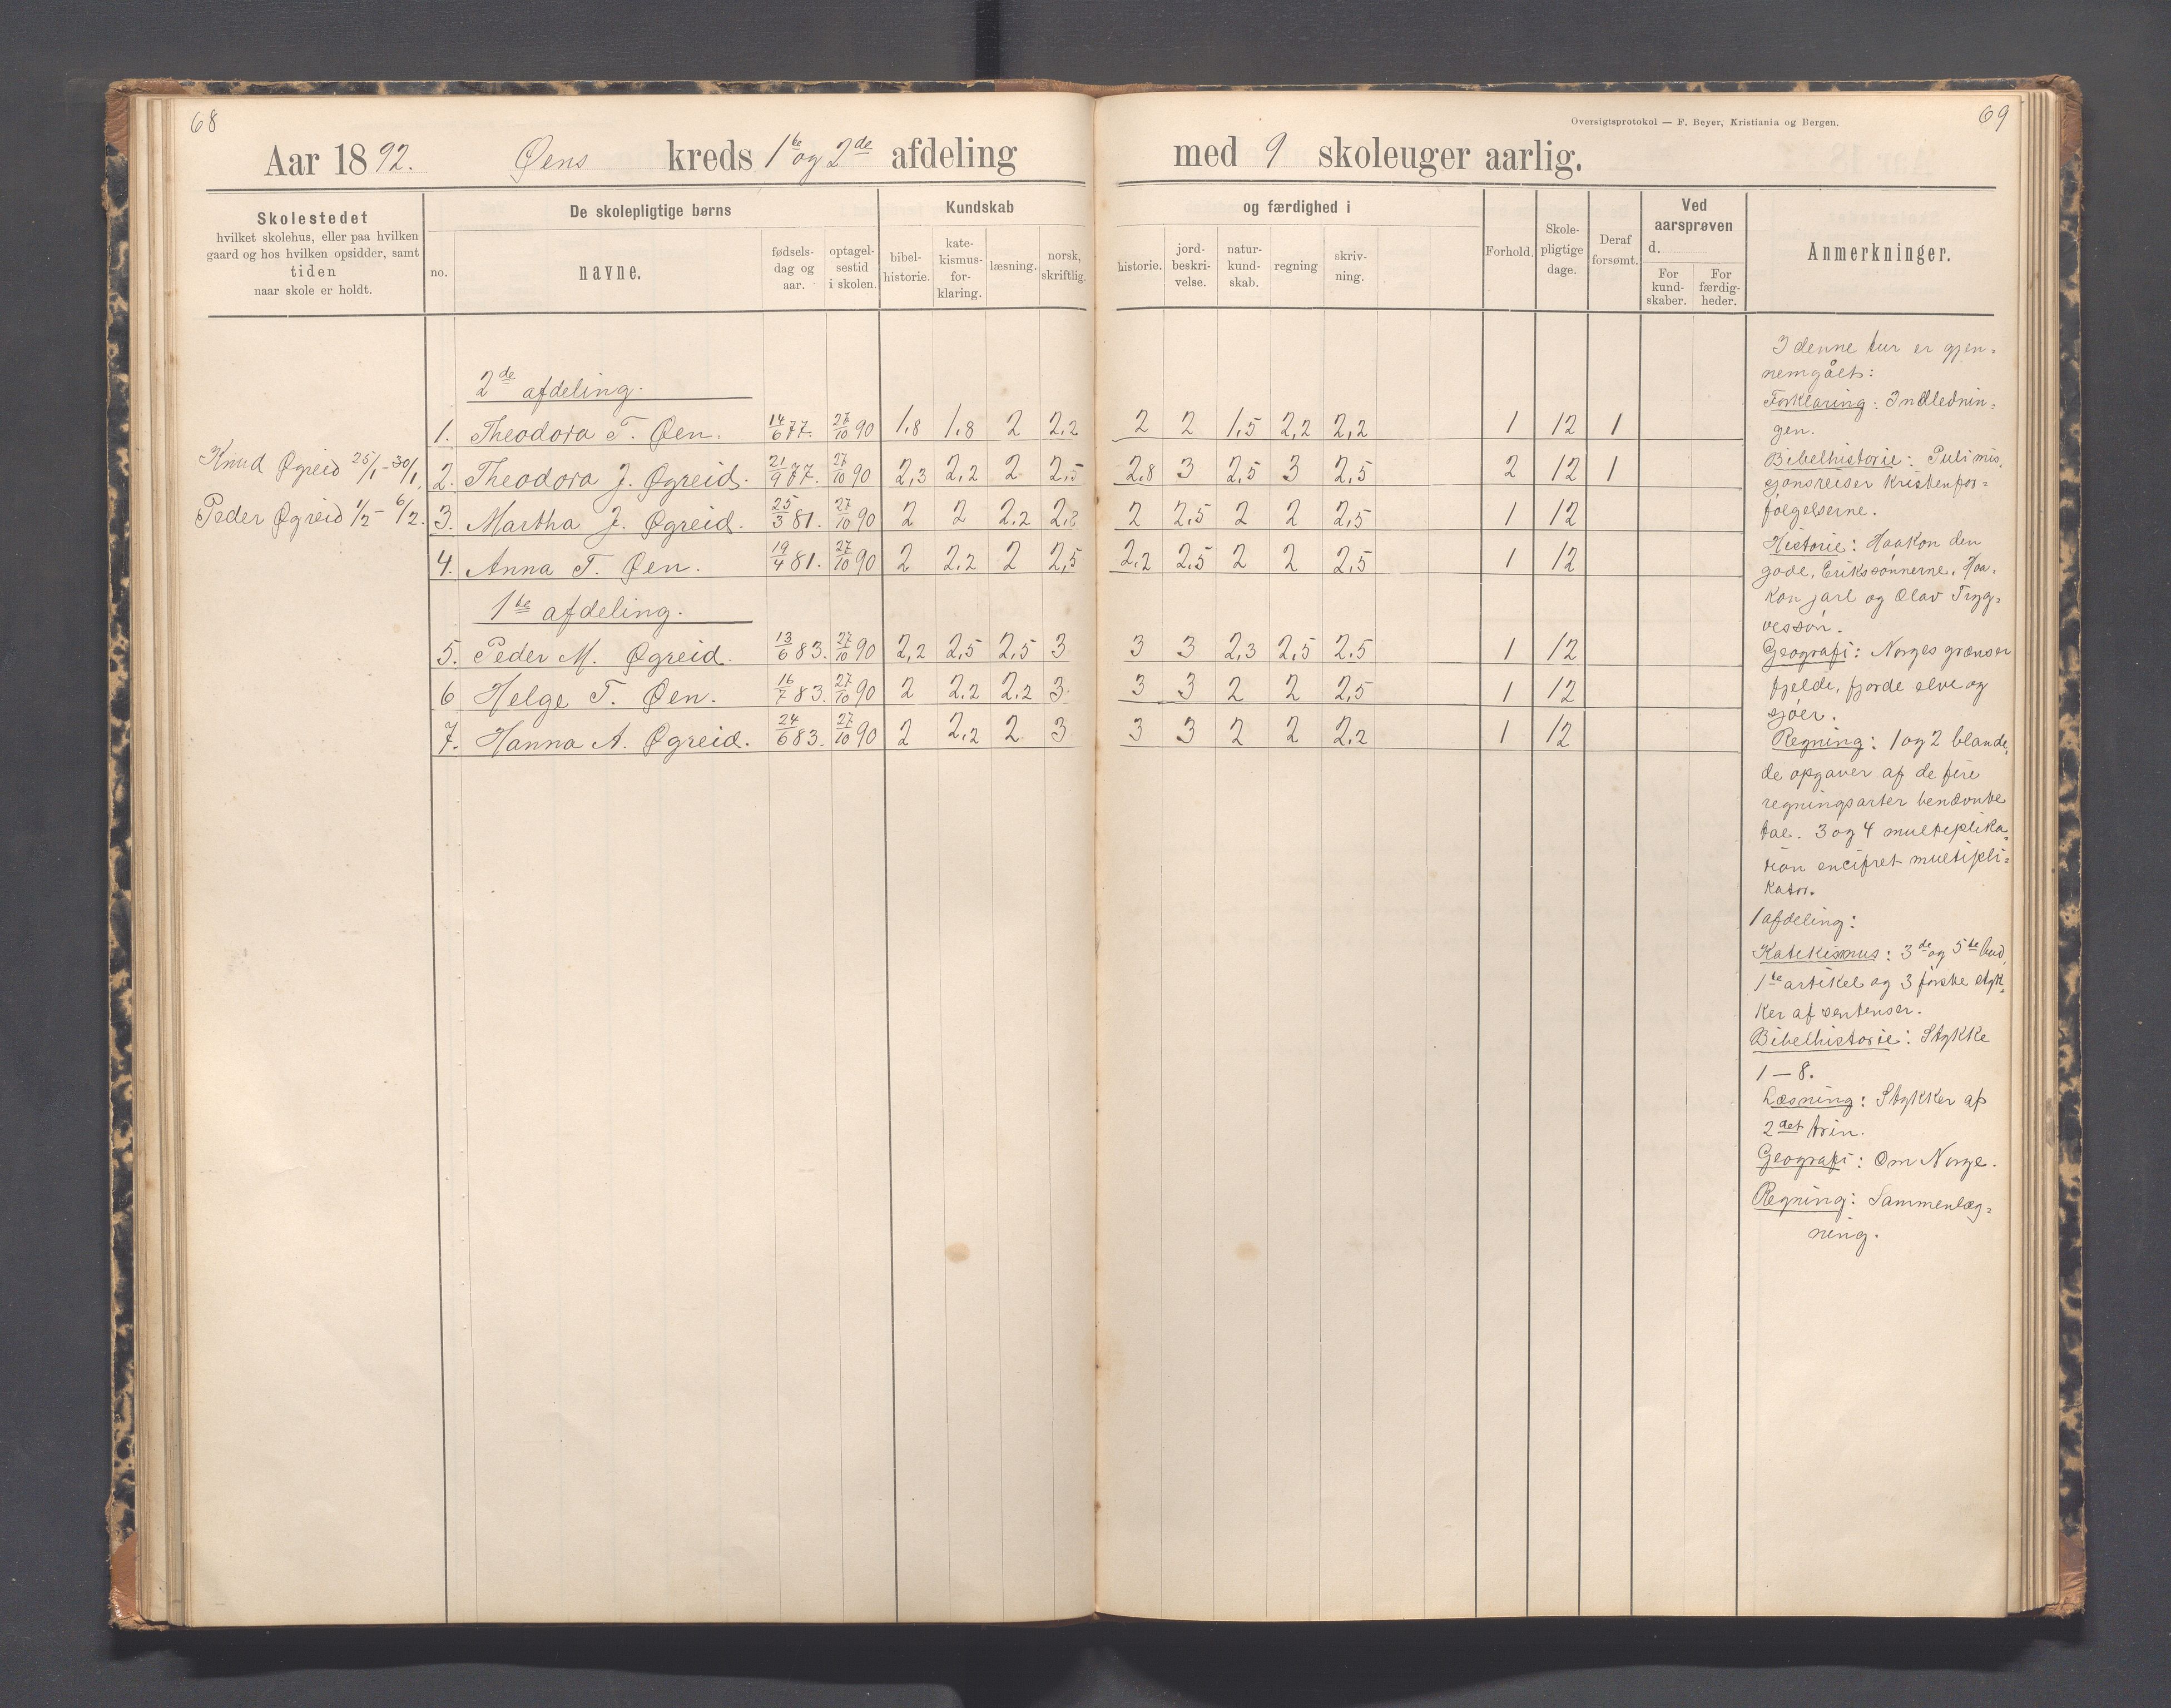 68
69
Oversigtsprotokol — F. Beyer, Kristiania og Bergen.
Aar 1892. Øens kreds 1te og 2de afdeling med 9 skoleuger aarlig.
Skolestedet
hvilket skolehus, eller paa hvilken
gaard og hos hvilken opsidder, samt
tiden
naar skole er holdt.
De skolepligtige børns
no.
navne.
fødsels-
dag og
aar.
optagel-
sestid
i skolen.
Kundskab
bibel-
historie.
kate-
kismus-
for-
klaring.
læsning.
norsk,
skriftlig.
og færdighed i
historie.
jord-
beskri-
velse.
natur-
kund-
skab.
regning
skriv-
ning.
Forhold.
Skole-
pligtige
dage.
Deraf
forsømt.
Ved
aarsprøven
d.
For
kund-
skaber.
For
færdig-
heder.
Anmerkninger.
2de afdeling.
1. Theodora T. Øen. 14/6 77. 27/10 90 1,8 1,8 2 2,2 2 2 1,5 2,2 2,2 1 12 1
Knud Øgreid 25/1-30/1.
2. Theodora J. Øgreid. 21/9 77. 27/10 90 2,3 2,2 2 2,5 2,8 3 2,5 3 2,5 2 12 1
Peder Øgreid 1/2- 6/2.
3. Martha J. Øgreid. 25/3 81. 27/10 90 2 2 2,2 2,8 2 2,5 2 2 2,5 1 12
4. Anna T. Øen. 19/4 81. 27/10 90 2 2,2 2 2,5 2,2 2,5 2 2 2,5 1 12
1te afdeling.
5. Peder M. Øgreid. 13/6 83. 27/10 90 2,2 2,5 2,5 3 3 3 2,3 2,5 2,5 1 12
6 Helge T. Øen. 16/7 83. 27/10 90 2 2,2 2,2 3 3 3 2 2 2,5 1 12
7. Hanna A. Øgreid. 24/6 83. 27/10 90 2 2,2 2 3 3 3 2 2 2,2 1 12
I denne tur er gjen=
nemgået:
Forklaring: Indlednin=
gen.
Bibelhistorie: Puli mis,
sjonsreiser kristenfor=
følgelserne.
Historie: Haakon den
gode, Erikssønnerne, Haa,
kon jarl og Olav Tryg=
vessøn.
Geografi: Norges grænser
fjelde, fjorde elve og
sjøer.
Regning: 1 og 2 blande,
de opgaver af de fire
regningsarter benævnte
tal. 3 og 4 multiplika=
tion encifret multipli=
kator.
1 afdeling:
Katekismus: 3de og 5te bud,
1te artikel og 3 første styk=
ker af sentenser.
Bibelhistorie: Stykke
1 — 8.
Læsning: Stykker af
2det trin.
Geografi: Om Norge.
Regning: Sammenlæg=
ning.